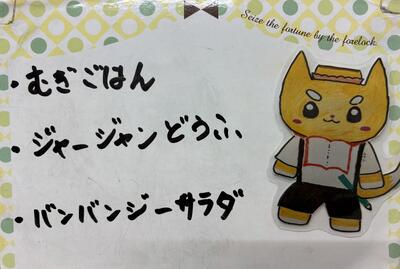 Seize the fortune by the forelock.
・むぎごはん
・ジャージャンどうふ
・バンバンジーサラダ